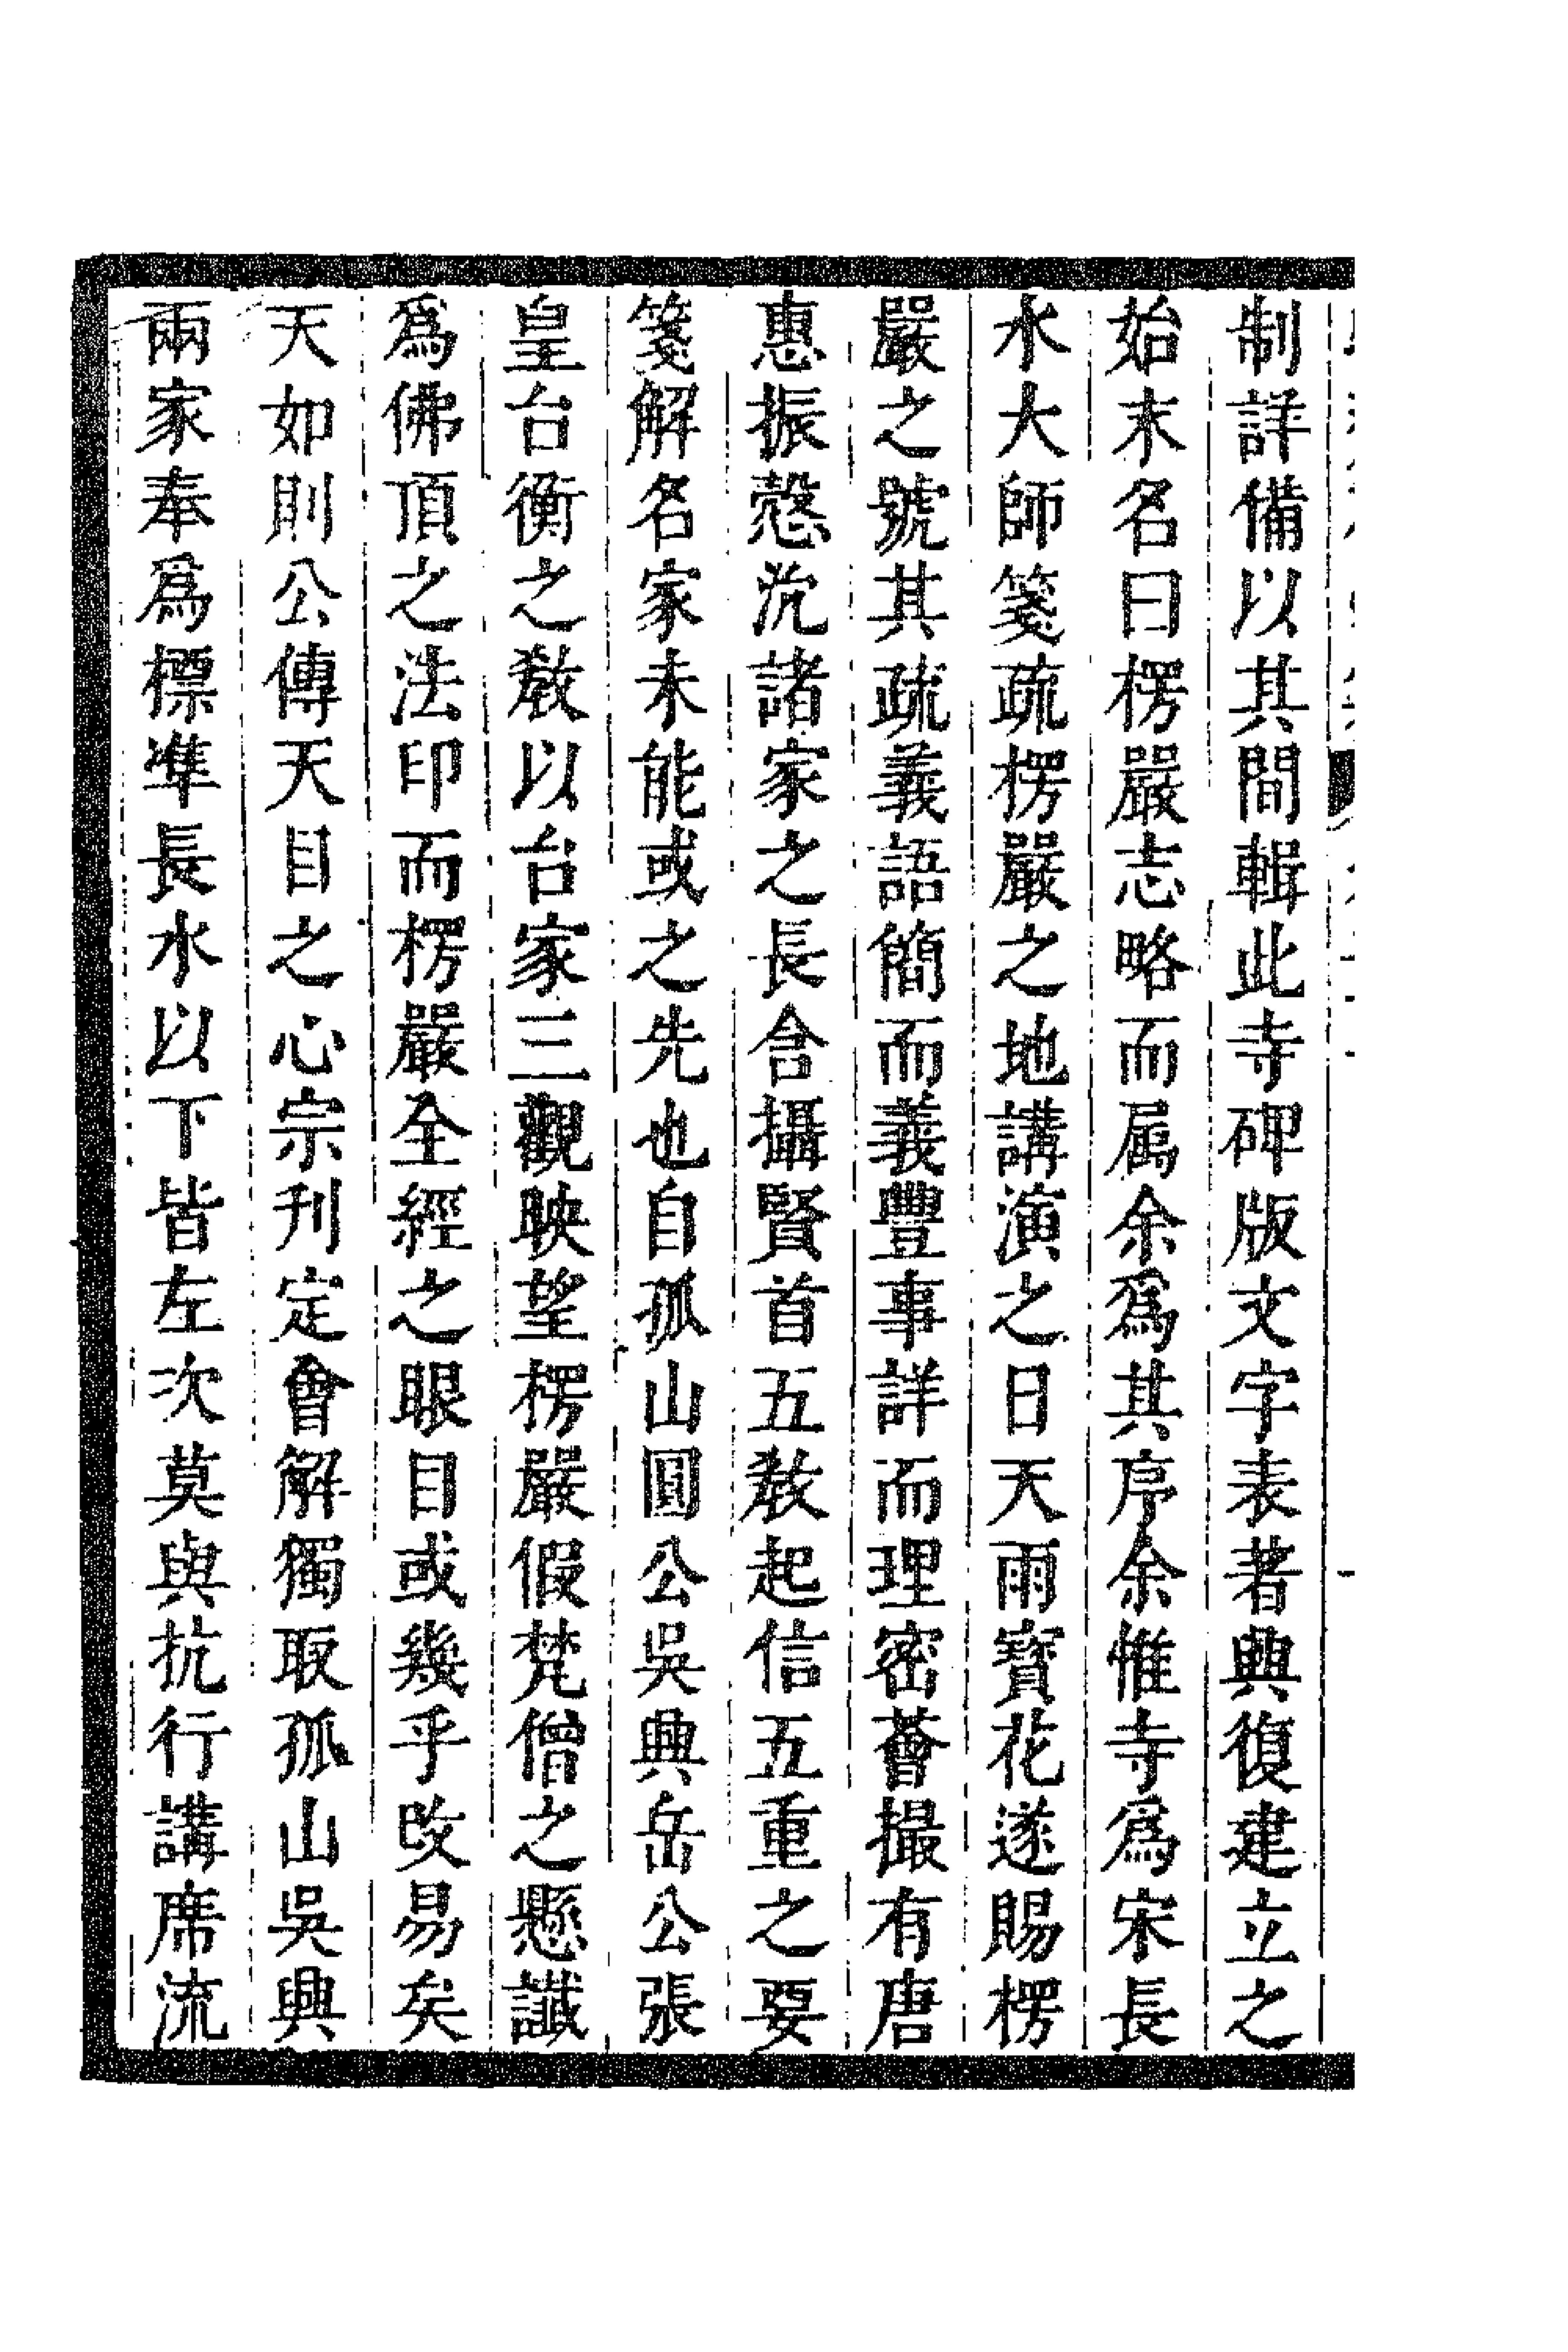 制詳備以其間輯此寺碑版文字表著興復建立之
始末名曰楞嚴志略而属余爲其序余惟寺爲宋長
水大師箋疏楞嚴之地講演之日天雨寶花遂賜楞
嚴之號其疏義語簡而義豐事詳而理密薈撮有唐
惠振慤沇諸家之長含攝賢首五敎起信五重之要
箋解名家未能或之先也自孤山圓公吳興岳公張
皇台衡之敎以台家三觀映望楞嚴假梵僧之懸讖
爲佛頂之法印而楞嚴全經之眼目或幾乎改易矣
天如則公傳天目之心宗刋定會解獨取孤山吳興
兩家奉爲標準長水以下皆左次莫與抗行講席流